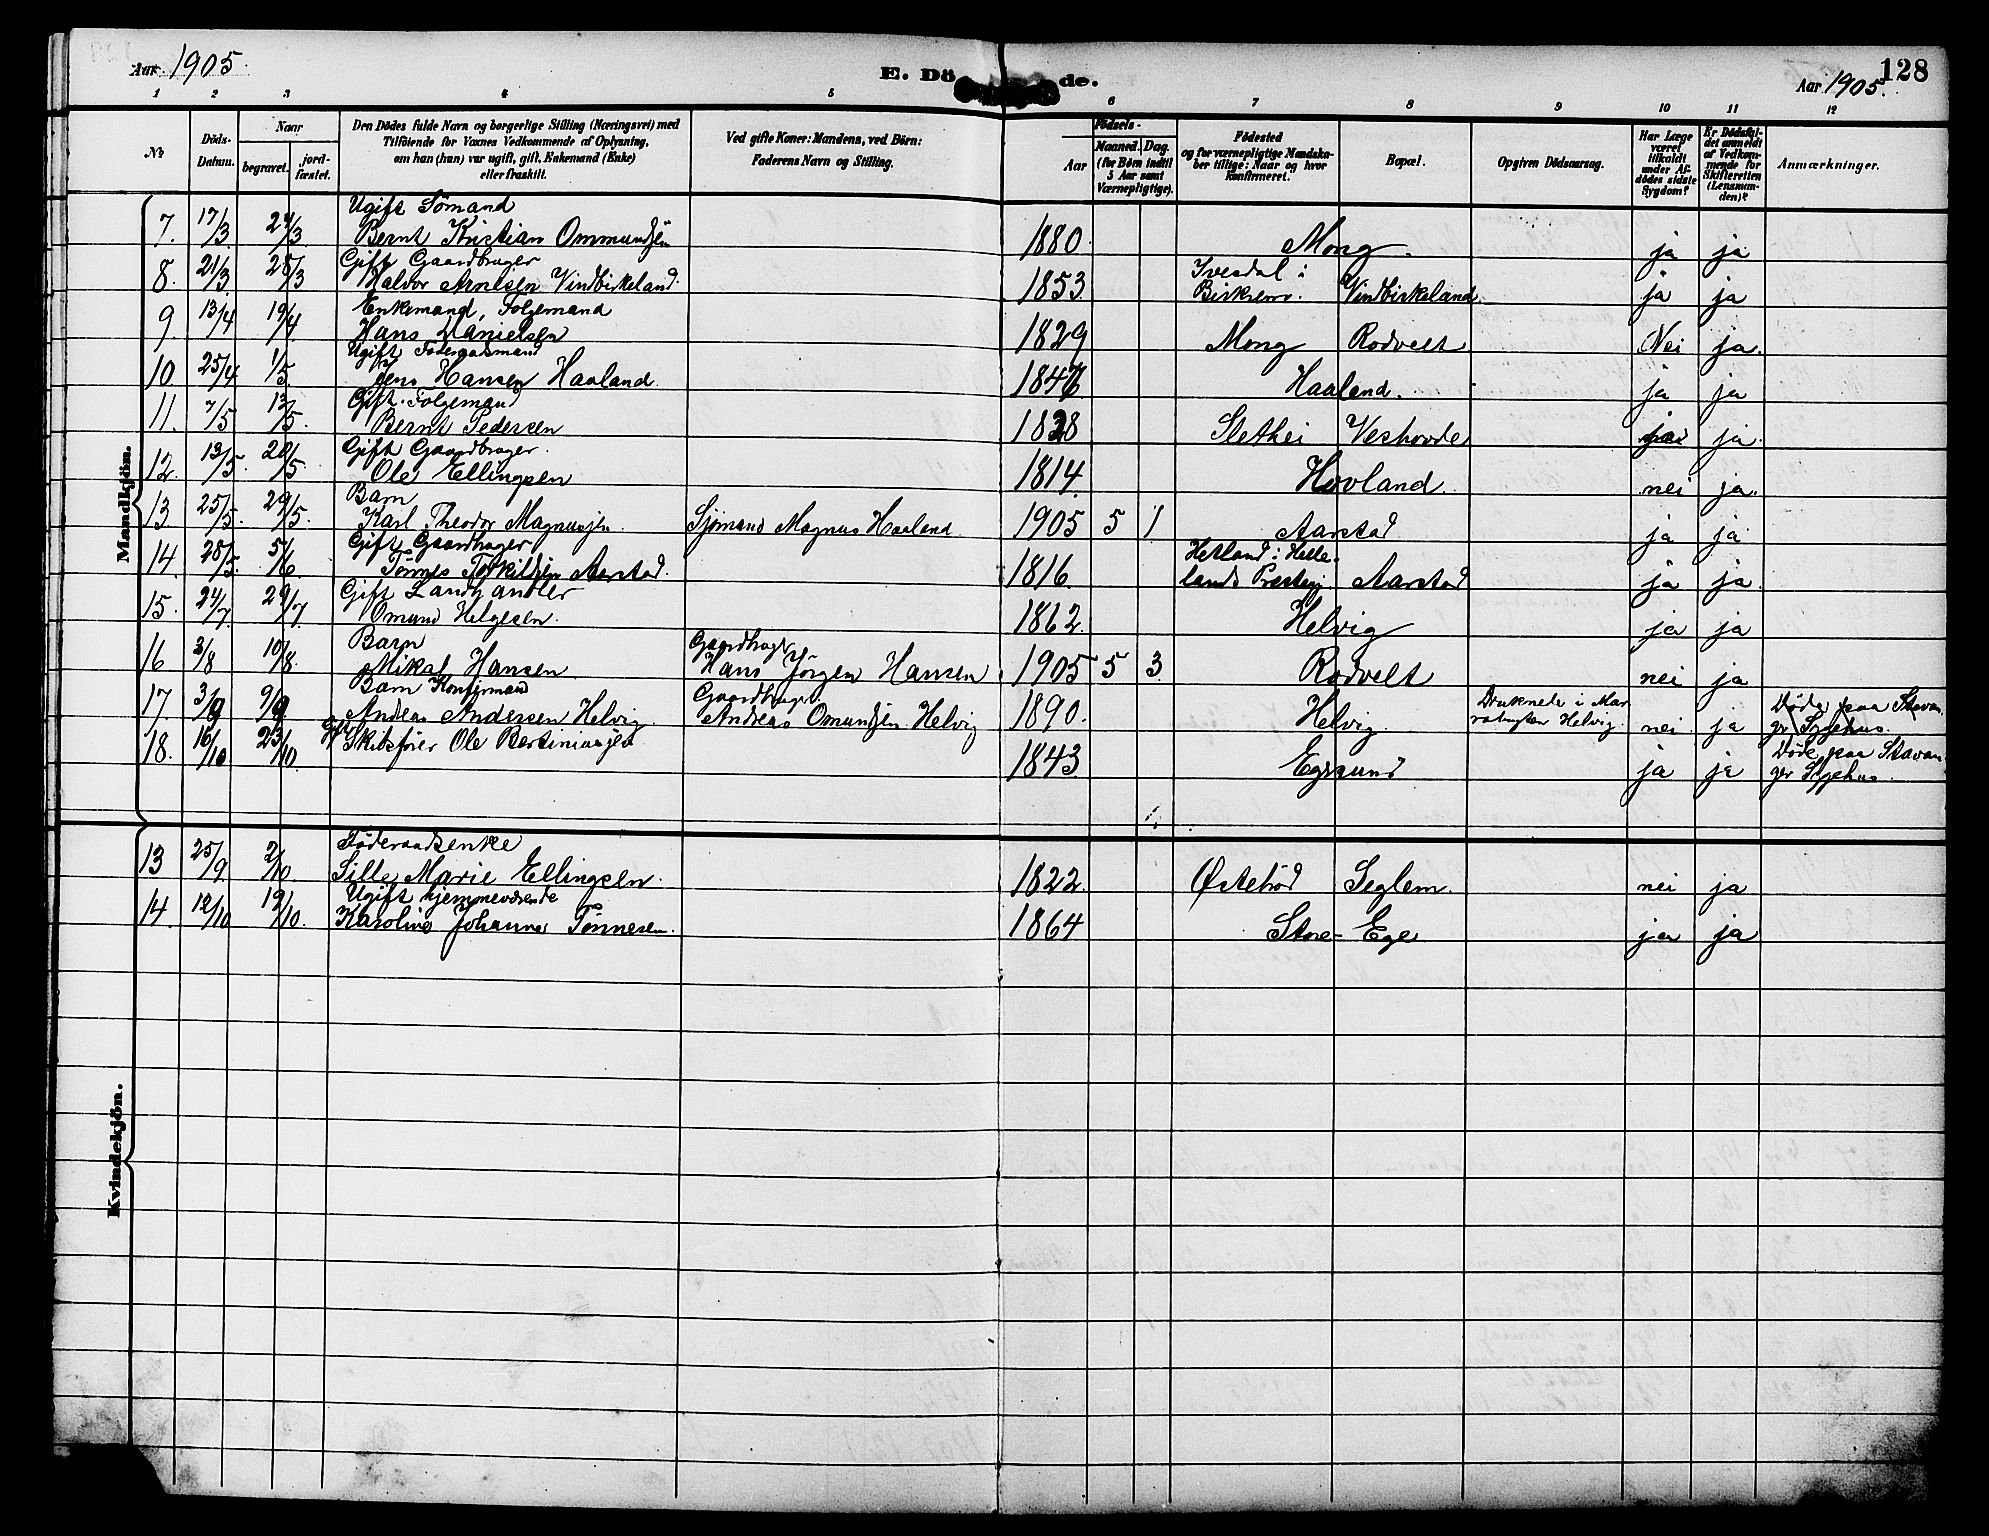 Aar 1905.
E. Dö de.
128
Aar 1905.
1 2 3 4 5 6 7 8 9 10 11 12
№
Döds-Datum.
Naar
begravet.
jord-fæstet.
Den Dödes fulde Navn og borgerlige Stilling (Næringsvei) med
Tilföiende for Voxnes Vedkommende af Oplysning,
om han (hun) var ugift, gift, Enkemand (Enke)
eller fraskilt.
Ved gifte Koner: Mandens, ved Börn:
Faderens Navn og Stilling.
Födsels-
Aar
Maaned. Dag.
(for Börn indtil
5 Aar samt
Værnepligtige).
Födested
og for værnepligtige Mandska-
ber tillige: Naar og hvor
konfirmeret.
Bopæl.
Opgiven Dödsaarsag.
Har Læge
været
tilkaldt
under Af-
dödes sidste
Sygdom?
Er Dödsfal-
det anmeldt
af Vedkom-
mende for
Skifteretten
(Lensman-
den)?
Anmærkninger.
Mandkjön.
Ugift Sömand
7. 17/3 24/3 Bernt Kristian Ommundsen 1880. Mong. ja ja
Gift Gaardbruger Ivesdal i
8. 21/3. 28/3 Halvor Arntsen Vindbirkeland. 1853 Birkrem. Vindbirkeland. ja ja
Enkemand, Folgemand
9 13/4 19/4 Hans Danielsen 1829 Mong Rodvelt Nei ja.
Ugift Föderaadsmand
10. 25/4 1/5. Jens Hansen Haaland. 1847. Haaland. ja ja
Gift Folgemand
11. 7/5 13/5. Bernt Pedersen 1828 Slethei Veshovde ja.
Gift Gaardbruger.
12. 13/5. 20/5 Ole Ellingsen 1814. Hovland. nei ja.
Barn
13. 25/5. 29/5. Karl Theodor Magnussen. Sjömand Magnus Haaland. 1905 5 1 Aarstad ja ja
Gift Gaardbruger Hetland i Helle-
14. 28/5. 5/6 Tönnes Torkildsen Aarstad. 1816. lands Prestegj. Aarstad ja ja.
Gift Landhandler
15. 24/7. 29/7 Omund Helgesen. 1862. Helvig ja ja
Barn Gaardbruger
16 3/8 10/8. Mikal Hansen Hans Jörgen Hansen 1905 5 3 Rodvelt nei ja
Barn Konfirmand Gaardbruger Druknede i Mar- Döde paa Stavan-
17. 3/9 9/9 Andreas Andersen Helvig Andreas Omundsen Helvig 1890. Helvig. Helvig nei. ja ger Sygehus.
Döde paa Stavan-
18. 16/10 23/10. Skibsfører Ole Bertiniussen 1843 Egersund ja ja ger Sygehus.
Kvindekjön.
Föderaadsenke
13 25/9 2/10. Sille Marie Ellingsen. 1822. Østebröd Seglem. nei ja
Ugift hjemmeværende
14. 12/10 19/10. Karoline Johanne Tönnesen. 1864 Store-Ege ja ja